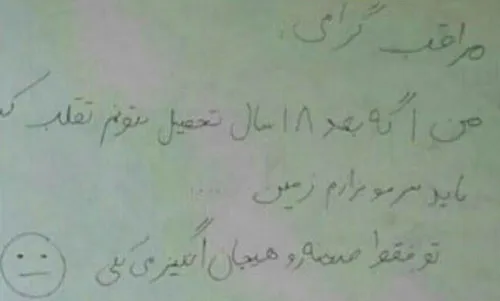 مراقب گرامی:
من اگه بعد ۱۸ سال تحصیل نتونم تقلب کنم
باید سرمو بزارم زمین ...
تو فقط صحنه رو هیجان انگیز می کنی